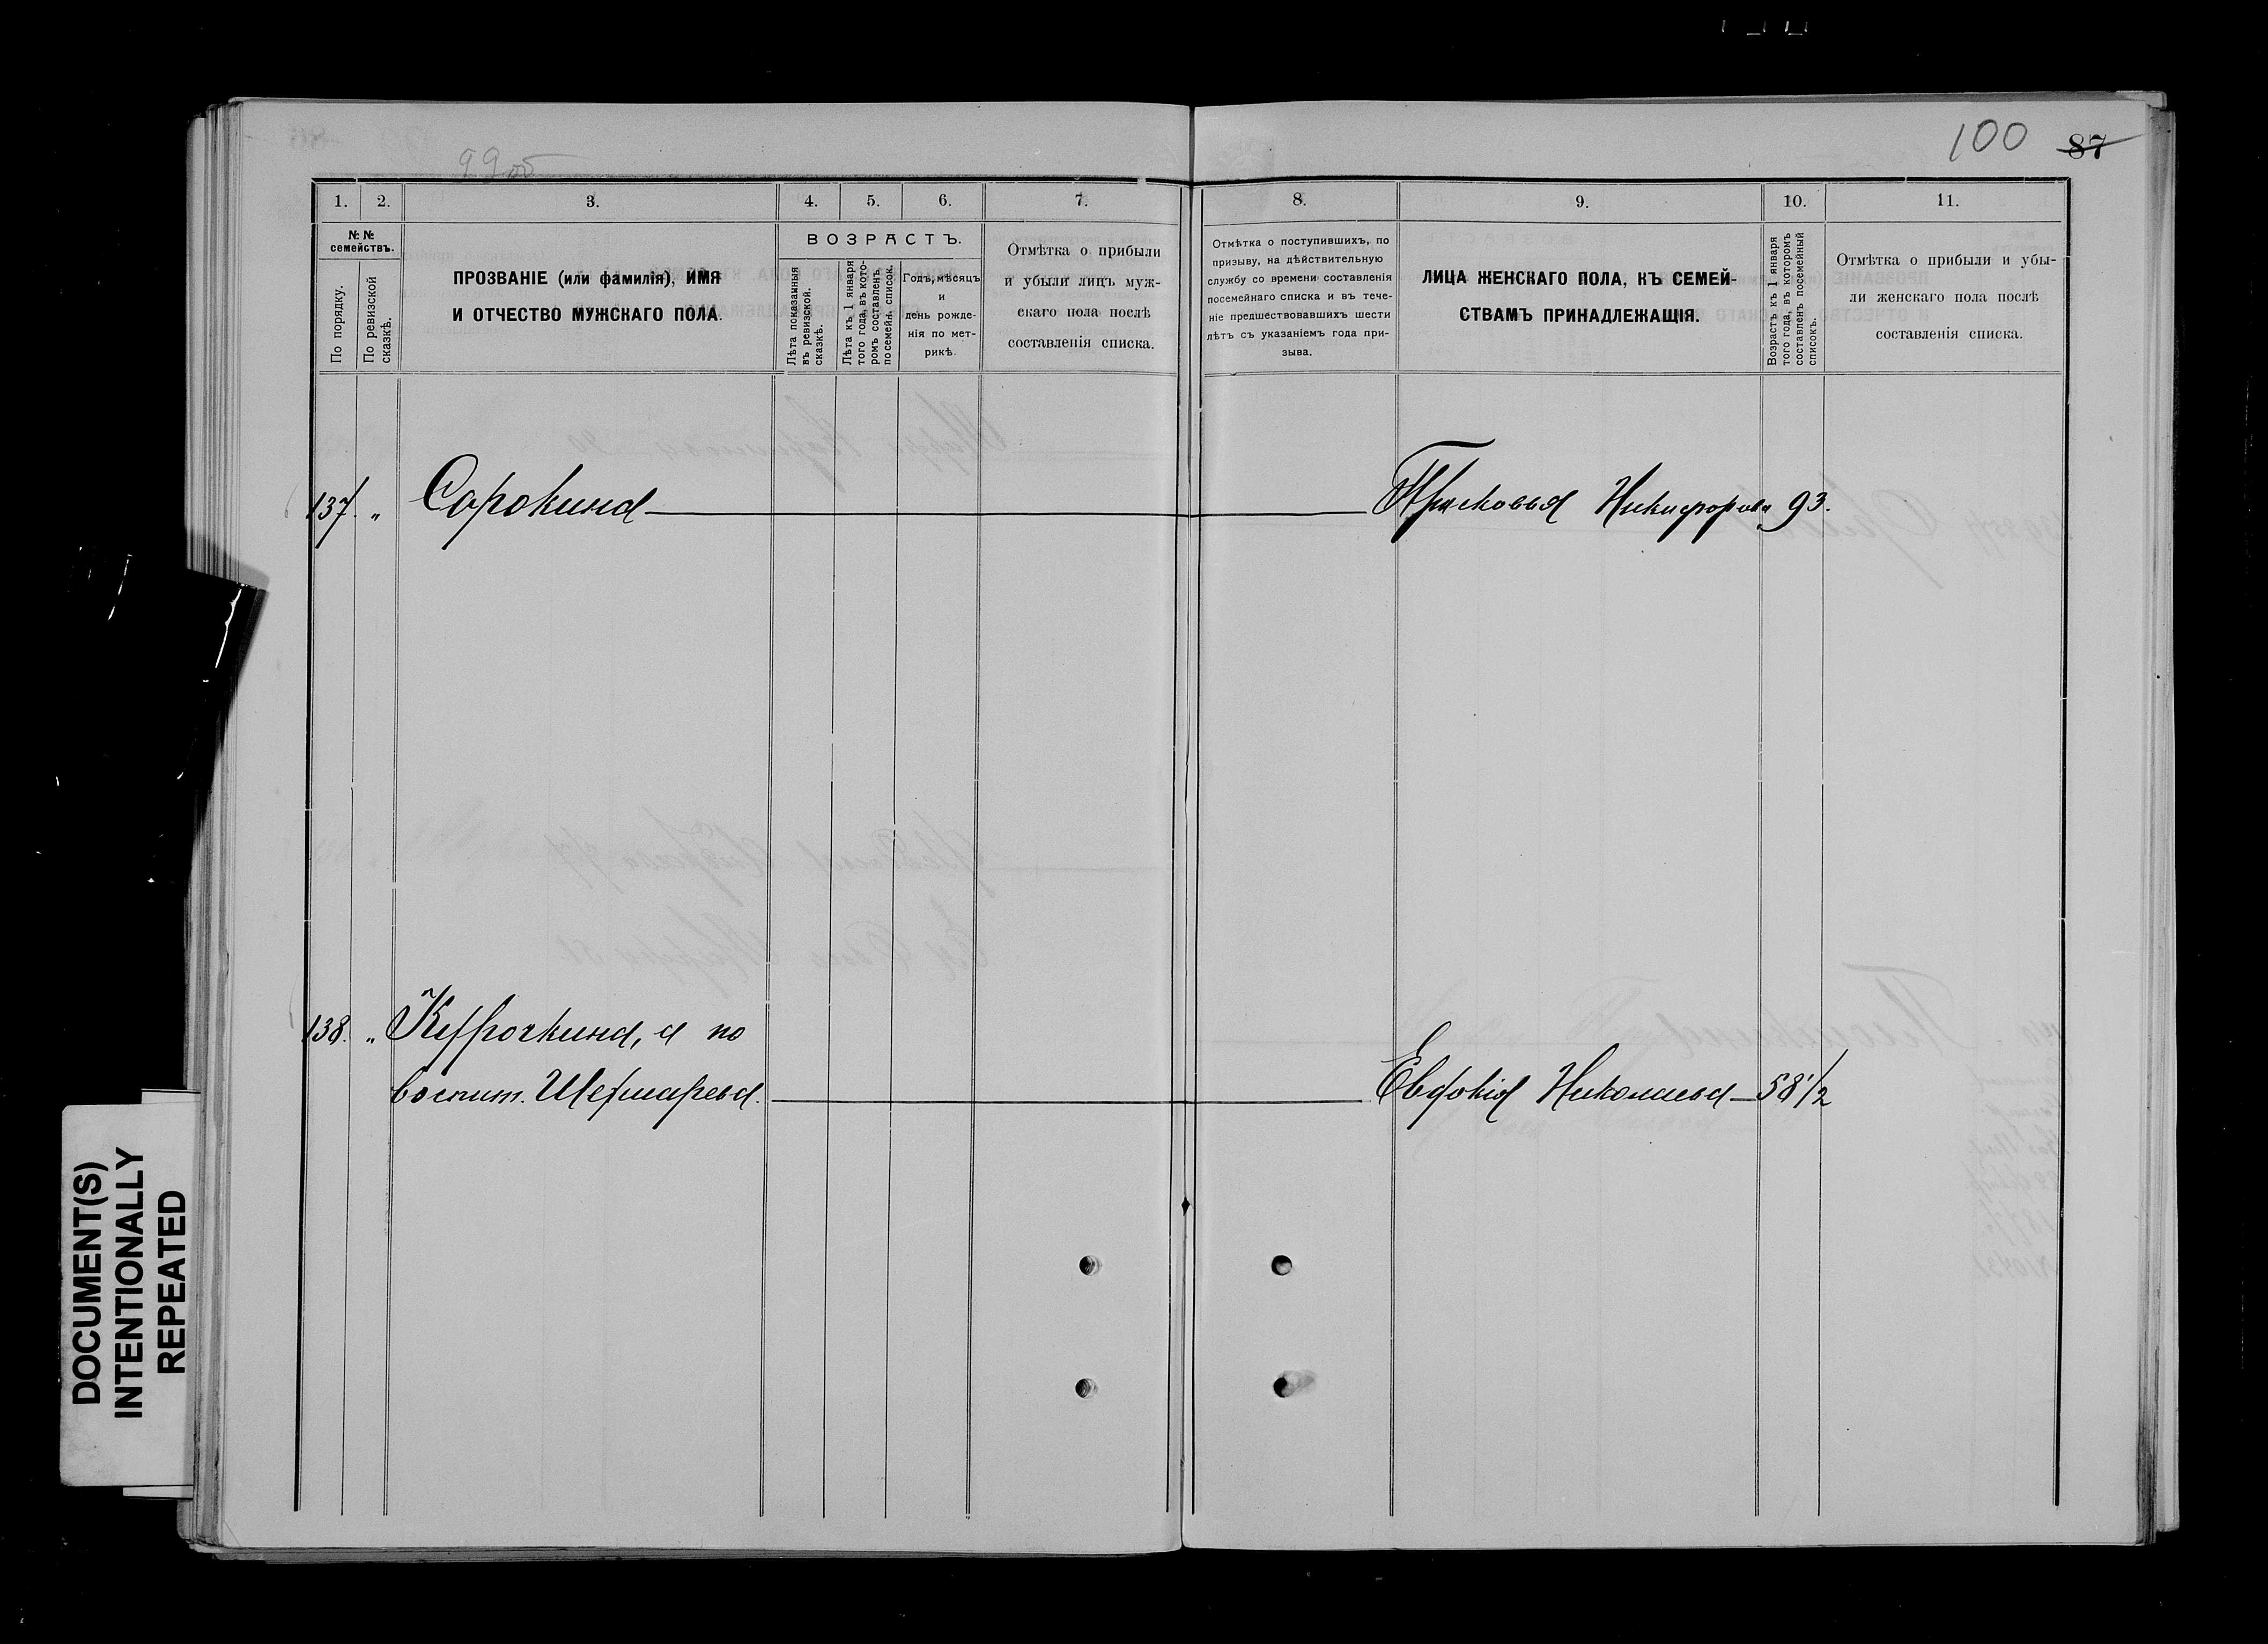 99об
100 87
1. 2. 3. 4. 5. 6. 7. 8. 9. 10. 11.
№№ семействъ.
По порядку.
По ревизской сказкѣ.
ПРОЗВАНІЕ (или фамилія), ИМЯ
И ОТЧЕСТВО МУЖСКАГО ПОЛА.
ВОЗРАСТЪ.
Лѣта показанныя
въ ревизской
сказкѣ.
Лѣта къ 1 января
того года, въ кото-
ромъ составленъ
посемейн. список.
Годъ, мѣсяцъ
и
день рожде-
нія по мет-
рикѣ.
Отмѣтка о прибыли
и убыли лицъ муж-
скаго пола послѣ
составленія списка.
Отмѣтка о поступившихъ, по
призыву, на дѣйствительную
службу со времени составленія
посемейнаго списка и въ тече-
ніе предшествовавшихъ шести
лѣтъ съ указаніемъ года при-
зыва.
ЛИЦА ЖЕНСКАГО ПОЛА, КЪ СЕМЕЙ-
СТВАМЪ ПРИНАДЛЕЖАЩІЯ.
Возрастъ къ 1 января
того года, въ которомъ
составленъ посемейный
списокъ.
Отмѣтка о прибыли и убы-
ли женскаго пола послѣ
составленія списка.
137. „ Сорокина Прасковья Никифорова 93.
138. „ а по
воспит. Евдокія Николаева 58 1/2
DOCUMENT(S)
INTENTIONALLY
REPEATED